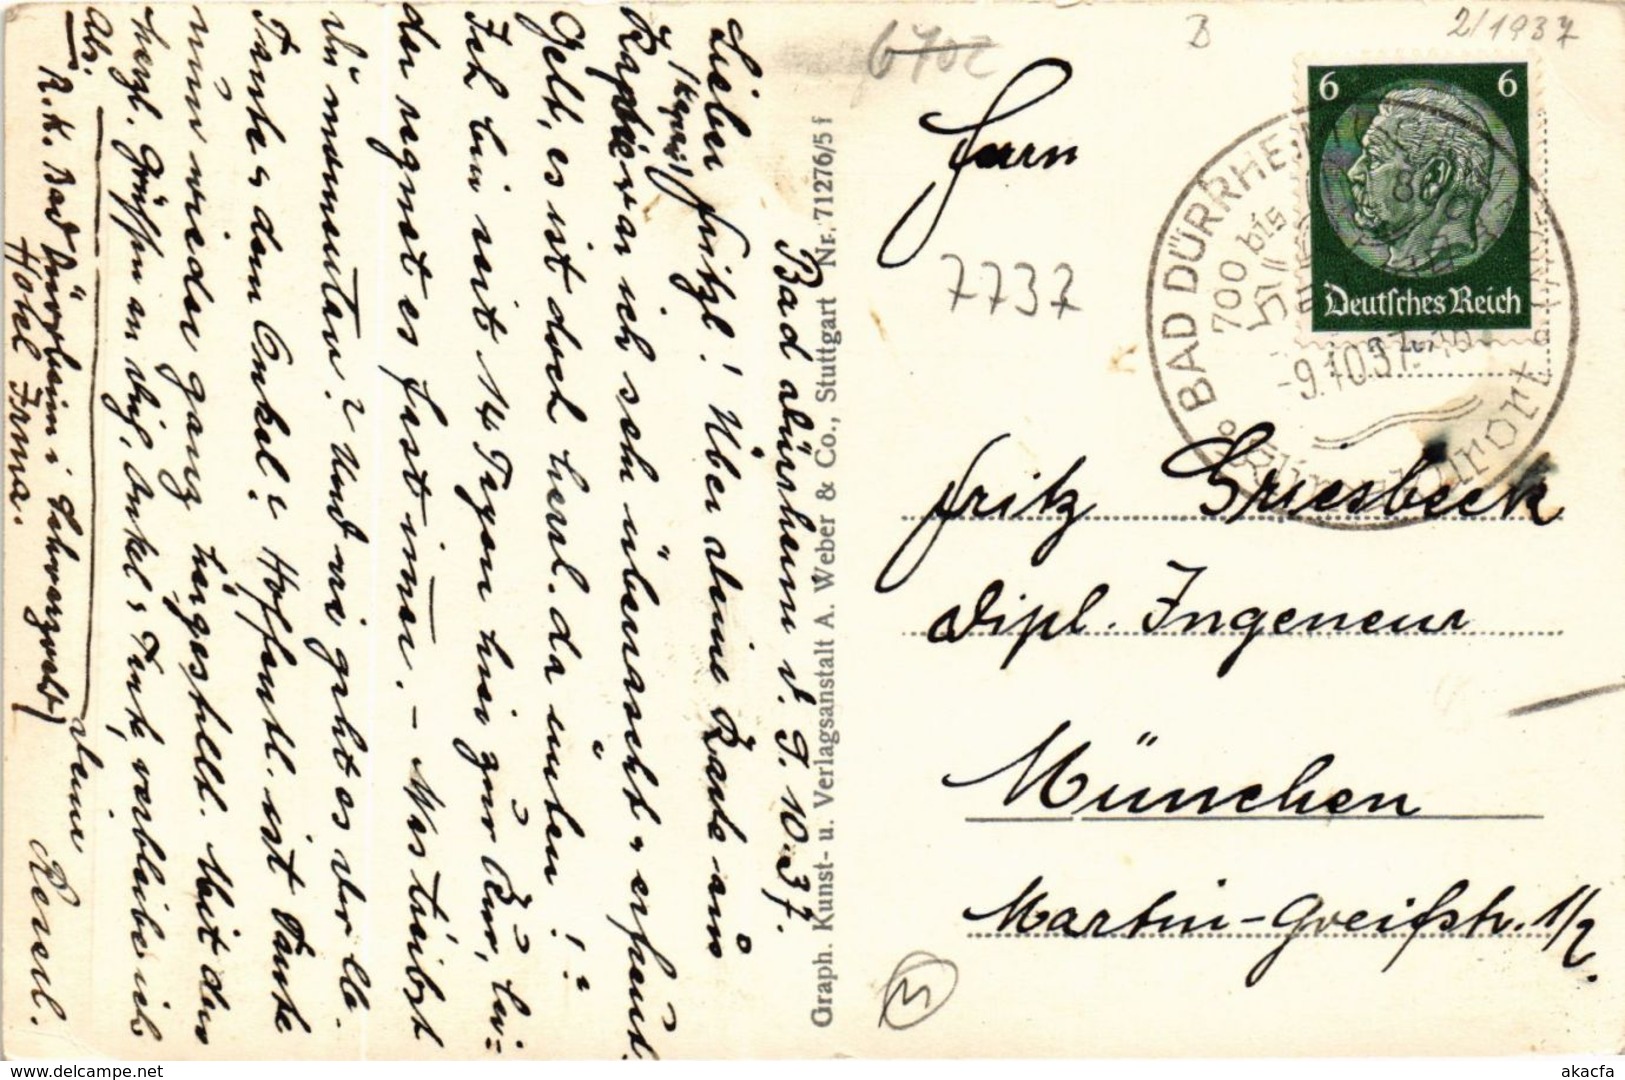 Bad Dürrheim d. 9.10.37.
Lieber Fritzl! Über deine Karte aus
(Kapri)
Kapri war ich sehr überrascht u. erfreut.
Gelt, es ist doch herrl. da unten!
Ich bin seit 14 Tagen hier zur Kur, lei=
der regnet es fast immer. – Was treibst
du momentan? Und wie geht es der lb.
Tante u. dem Onkel? Hoffentl. ist Tante
nun wieder ganz hergestellt. Mit den
herzl. Grüßen an dich, Onkel u. Tante verbleibe ich
deine Reserl.
Abs. R. K. Bad Dürrheim i Schwarzwald
Hotel Irma.
Graph. Kunst- u. Verlagsanstalt A. Weber & Co., Stuttgart Nr. 71276/5 f
6702
B
2/1937
6 6
Deutsches Reich
BAD DÜRRHEIM
700 bis
800
-9.10.37.
Herrn
7737
Fritz Griesbeck
Dipl. Ingeneur
München
Martin-Greifstr. 1/2.
M
delcampe.net
akacfa